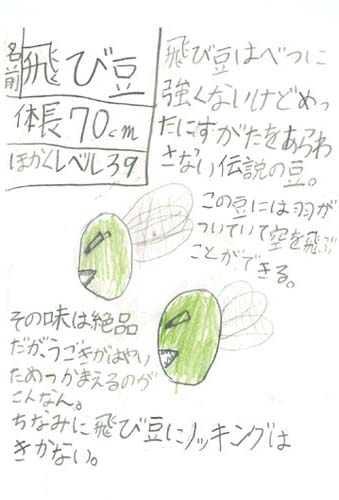 名前 飛び豆
体長70cm
ほかくレベル39
飛び豆はべつに
強くないけどめっ
たにすがたをあらわ
さない伝説の豆。
この豆には羽が
ついていて空を飛ぶ
ことができる。
その味は絶品
だが、うごきがはやい
ためつかまえるのが
こんなん。
ちなみに飛び豆にノッキングは
きかない。